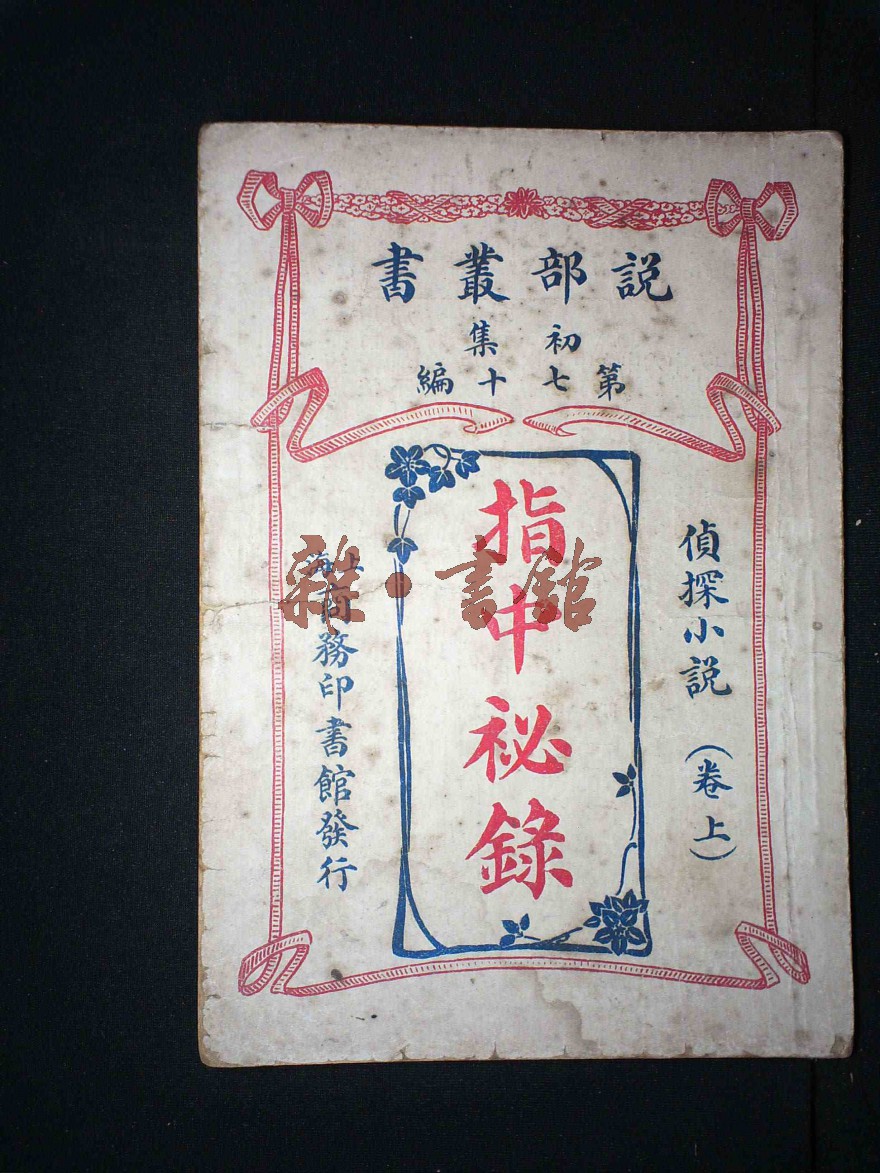 説部叢書
初集
第七十編
偵探小説（卷上）
指中祕錄
上海商務印書館發行
雜·書館